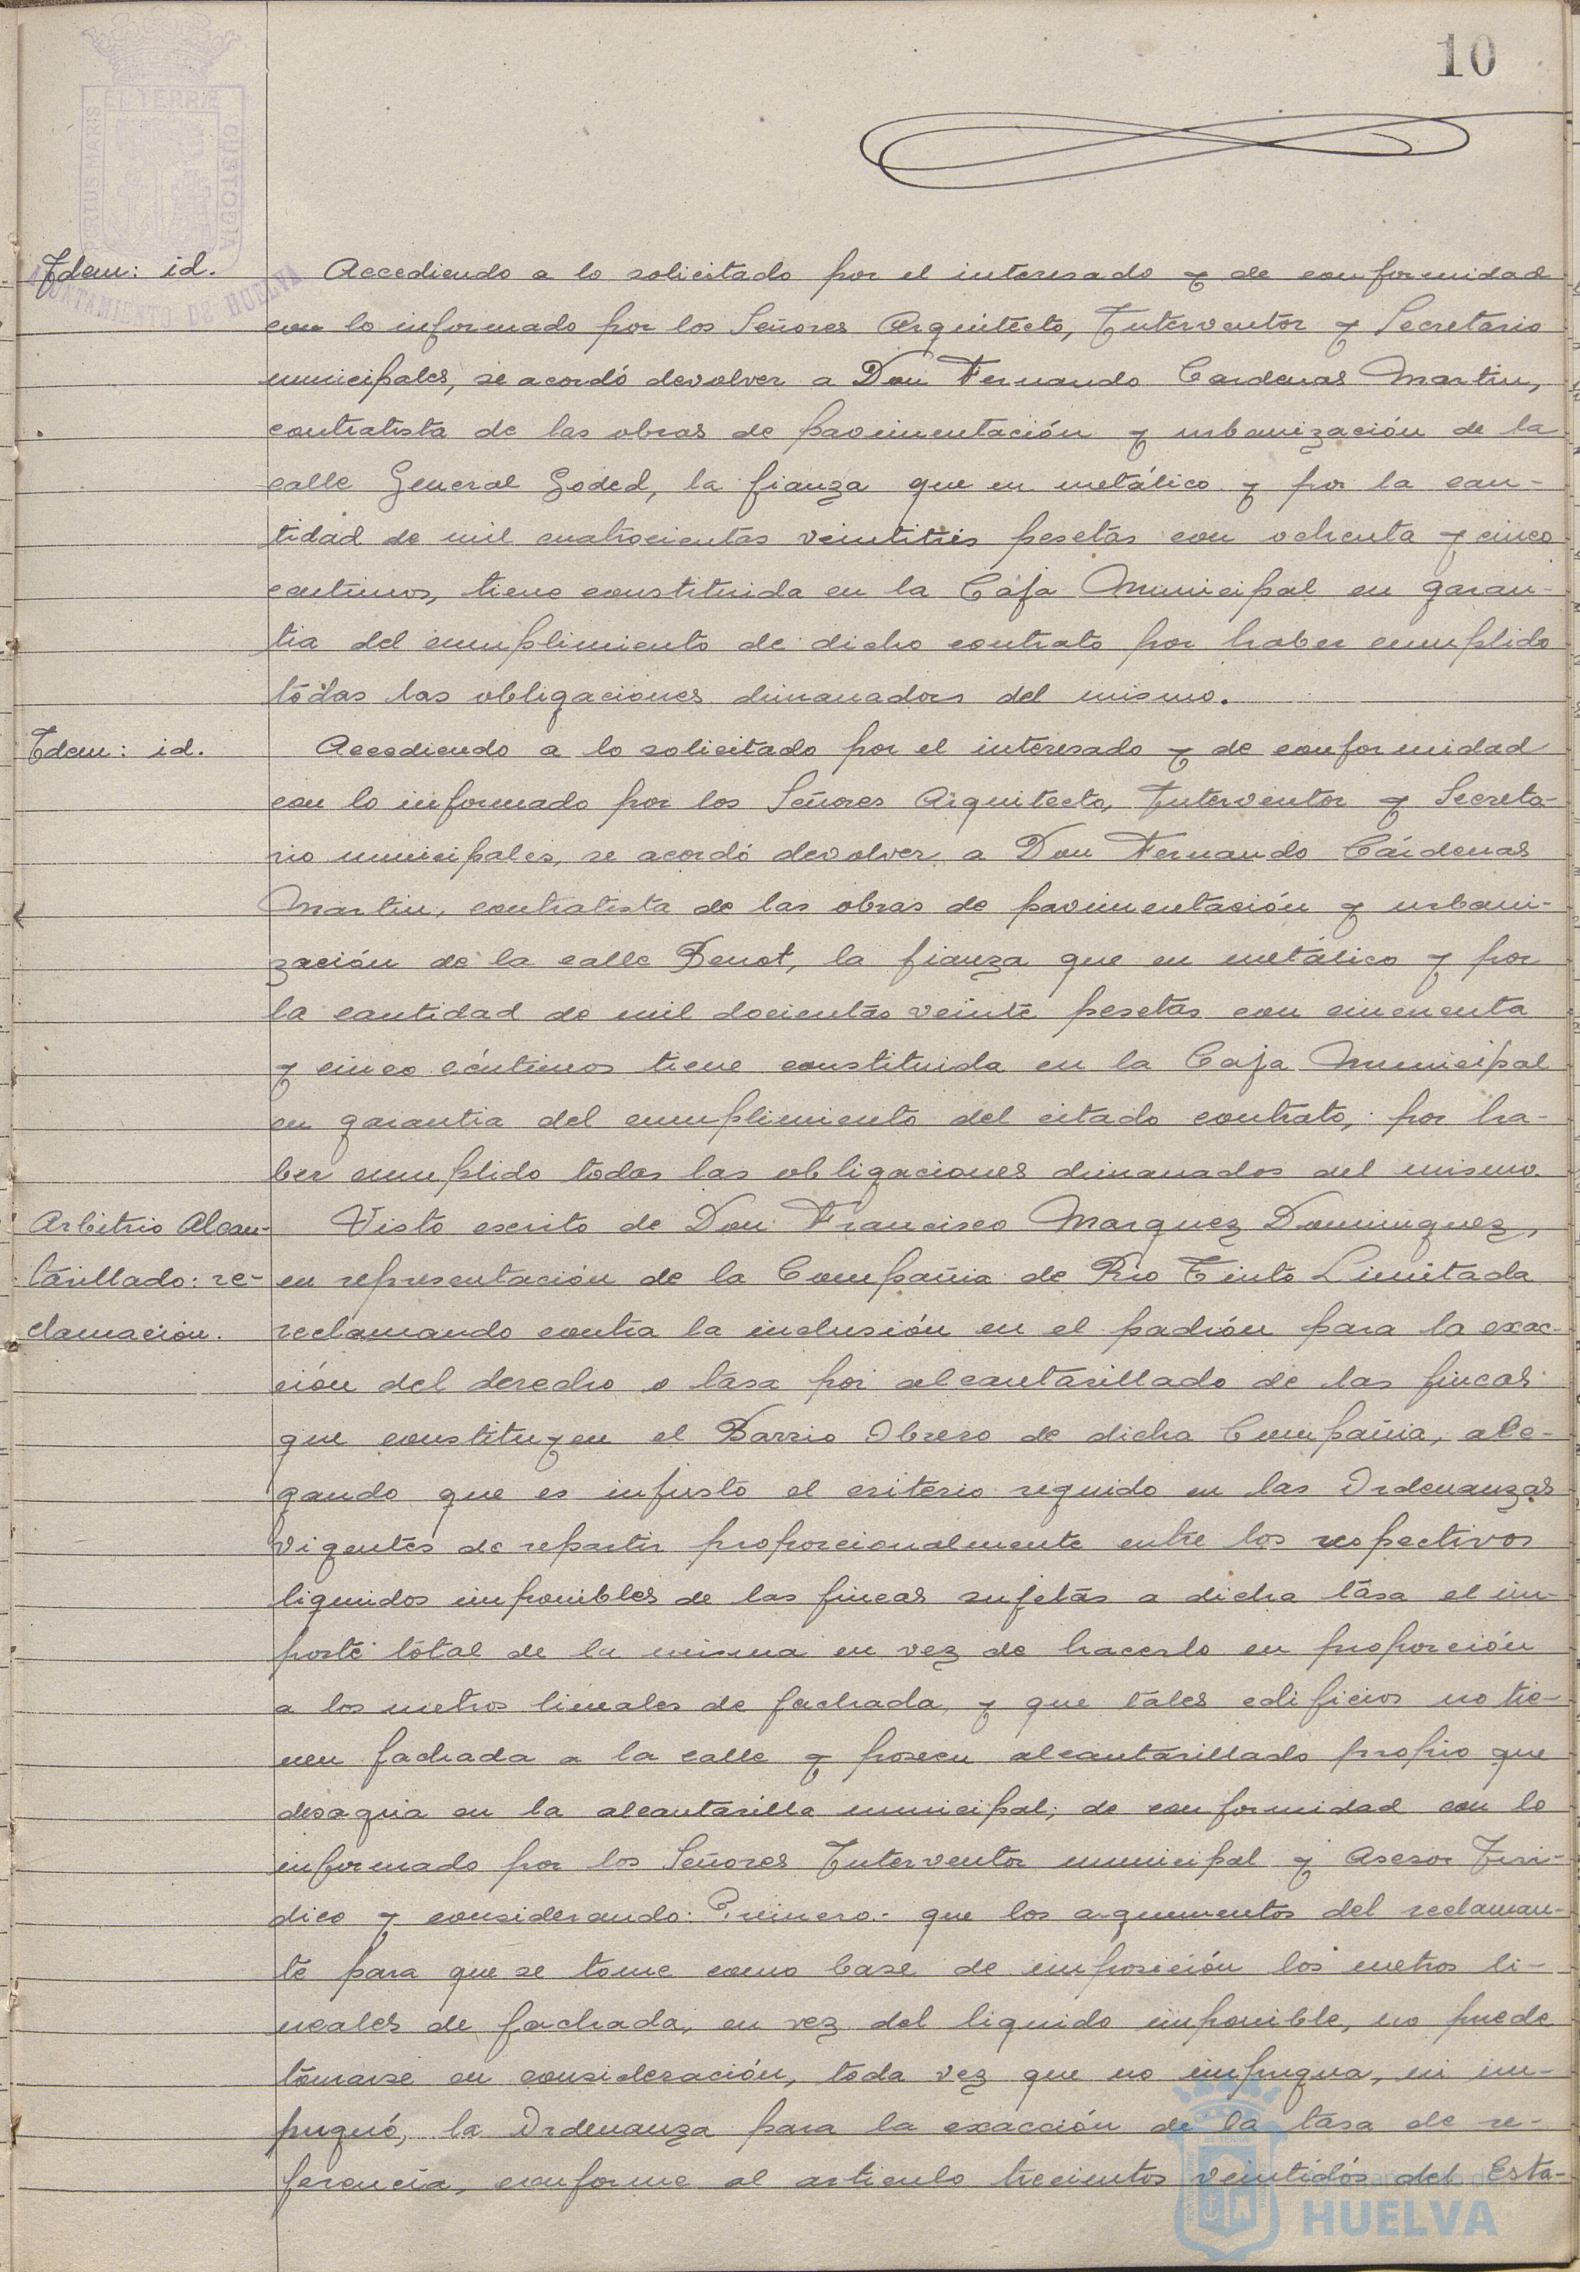 10
PORTUS MARIS ET TERRÆ CUSTODIA
AYUNTAMIENTO DE HUELVA
Idem: id. Accediendo a lo solicitado por el interesado y de conformidad
con lo informado por los Señores Arquitecto, Interventor y Secretario
municipales, se acordó devolver a Don Fernando Cardenas Martin,
contratista de las obras de pavimentación y urbanización de la
calle General Goded, la fianza que en metálico y por la can-
tidad de mil cuatrocientas veintitrés pesetas con ochenta y cinco
centimos, tiene constituida en la Caja Municipal en garan-
tia del cumplimiento de dicho contrato por haber cumplido
todas las obligaciones dimanadas del mismo.
Idem: id. Accediendo a lo solicitado por el interesado y de conformidad
con lo informado por los Señores Arquitecto, Interventor y Secreta-
rio municipales, se acordó devolver a Don Fernando Cárdenas
Martin, contratista de las obras de pavimentación y urbani-
zación de la calle Benot, la fianza que en metálico y por
la cantidad de mil docientas veinte pesetas con cincuenta
y cinco céntimos tiene constituida en la Caja Municipal
en garantia del cumplimiento del citado contrato, por ha-
ber cumplido todas las obligaciones dimanadas del mismo.
Arbitrio Alcan- Visto escrito de Don Francisco Marquez Dominguez,
tarillado: re- en representación de la Compañia de Rio Tinto Limitada
clamación. reclamando contra la inclusión en el padrón para la exac-
ción del derecho o tasa por alcantarillado de las fincas
que constituyen el Barrio Obrero de dicha Compañia, ale-
gando que es injusto el criterio seguido en las Ordenanzas
vigentes de repartir proporcionalmente entre los respectivos
liquidos imponibles de las fincas sujetas a dicha tasa el im-
porte total de la misma en vez de hacerlo en proporción
a los metros lineales de fachada, y que tales edificios no tie-
nen fachada a la calle y poseen alcantarillado propio que
desagua en la alcantarilla municipal; de conformidad con lo
informado por los Señores Interventor municipal y Asesor Juri-
dico y considerando: Primero.- que los argumentos del reclaman-
te para que se tome como base de imposición los metros li-
neales de fachada, en vez del liquido imponible, no puede
tomarse en consideración, toda vez que no impugna, ni im-
pugnó, la Ordenanza para la exacción de la tasa de re-
ferencia, conforme al articulo trecientos veintidós del Esta-
HUELVA